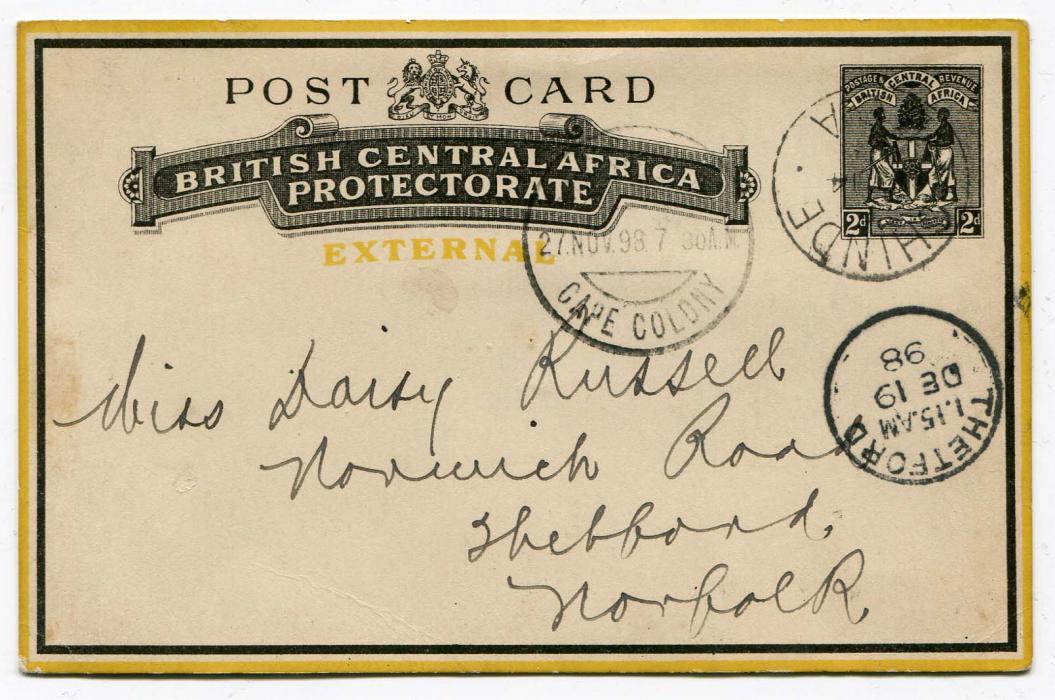 POST CARD
BRITISH CENTRAL AFRICA
PROTECTORATE
EXTERNAL
POSTAGE & REVENUE
BRITISH CENTRAL AFRICA
2d 2d
CHINDE . A
27.NOV.98.7 30A.M.
CAPE COLONY
THETFORD
1.15.AM
DE 19
98
Miss Daisy Russell
Norwich Road
Thetford,
Norfolk.